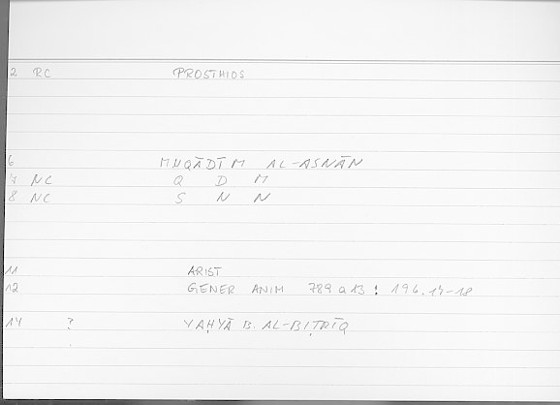 2 RC PROSTHIOS
6 MUQĀDĪM AL-ASNĀN
7 NC Q D M
8 NC S N N
11 ARIST
12 GENER ANIM 789 a 13 : 196.14-18
14 ? YAḤYĀ B. AL-BIṬRĪQ